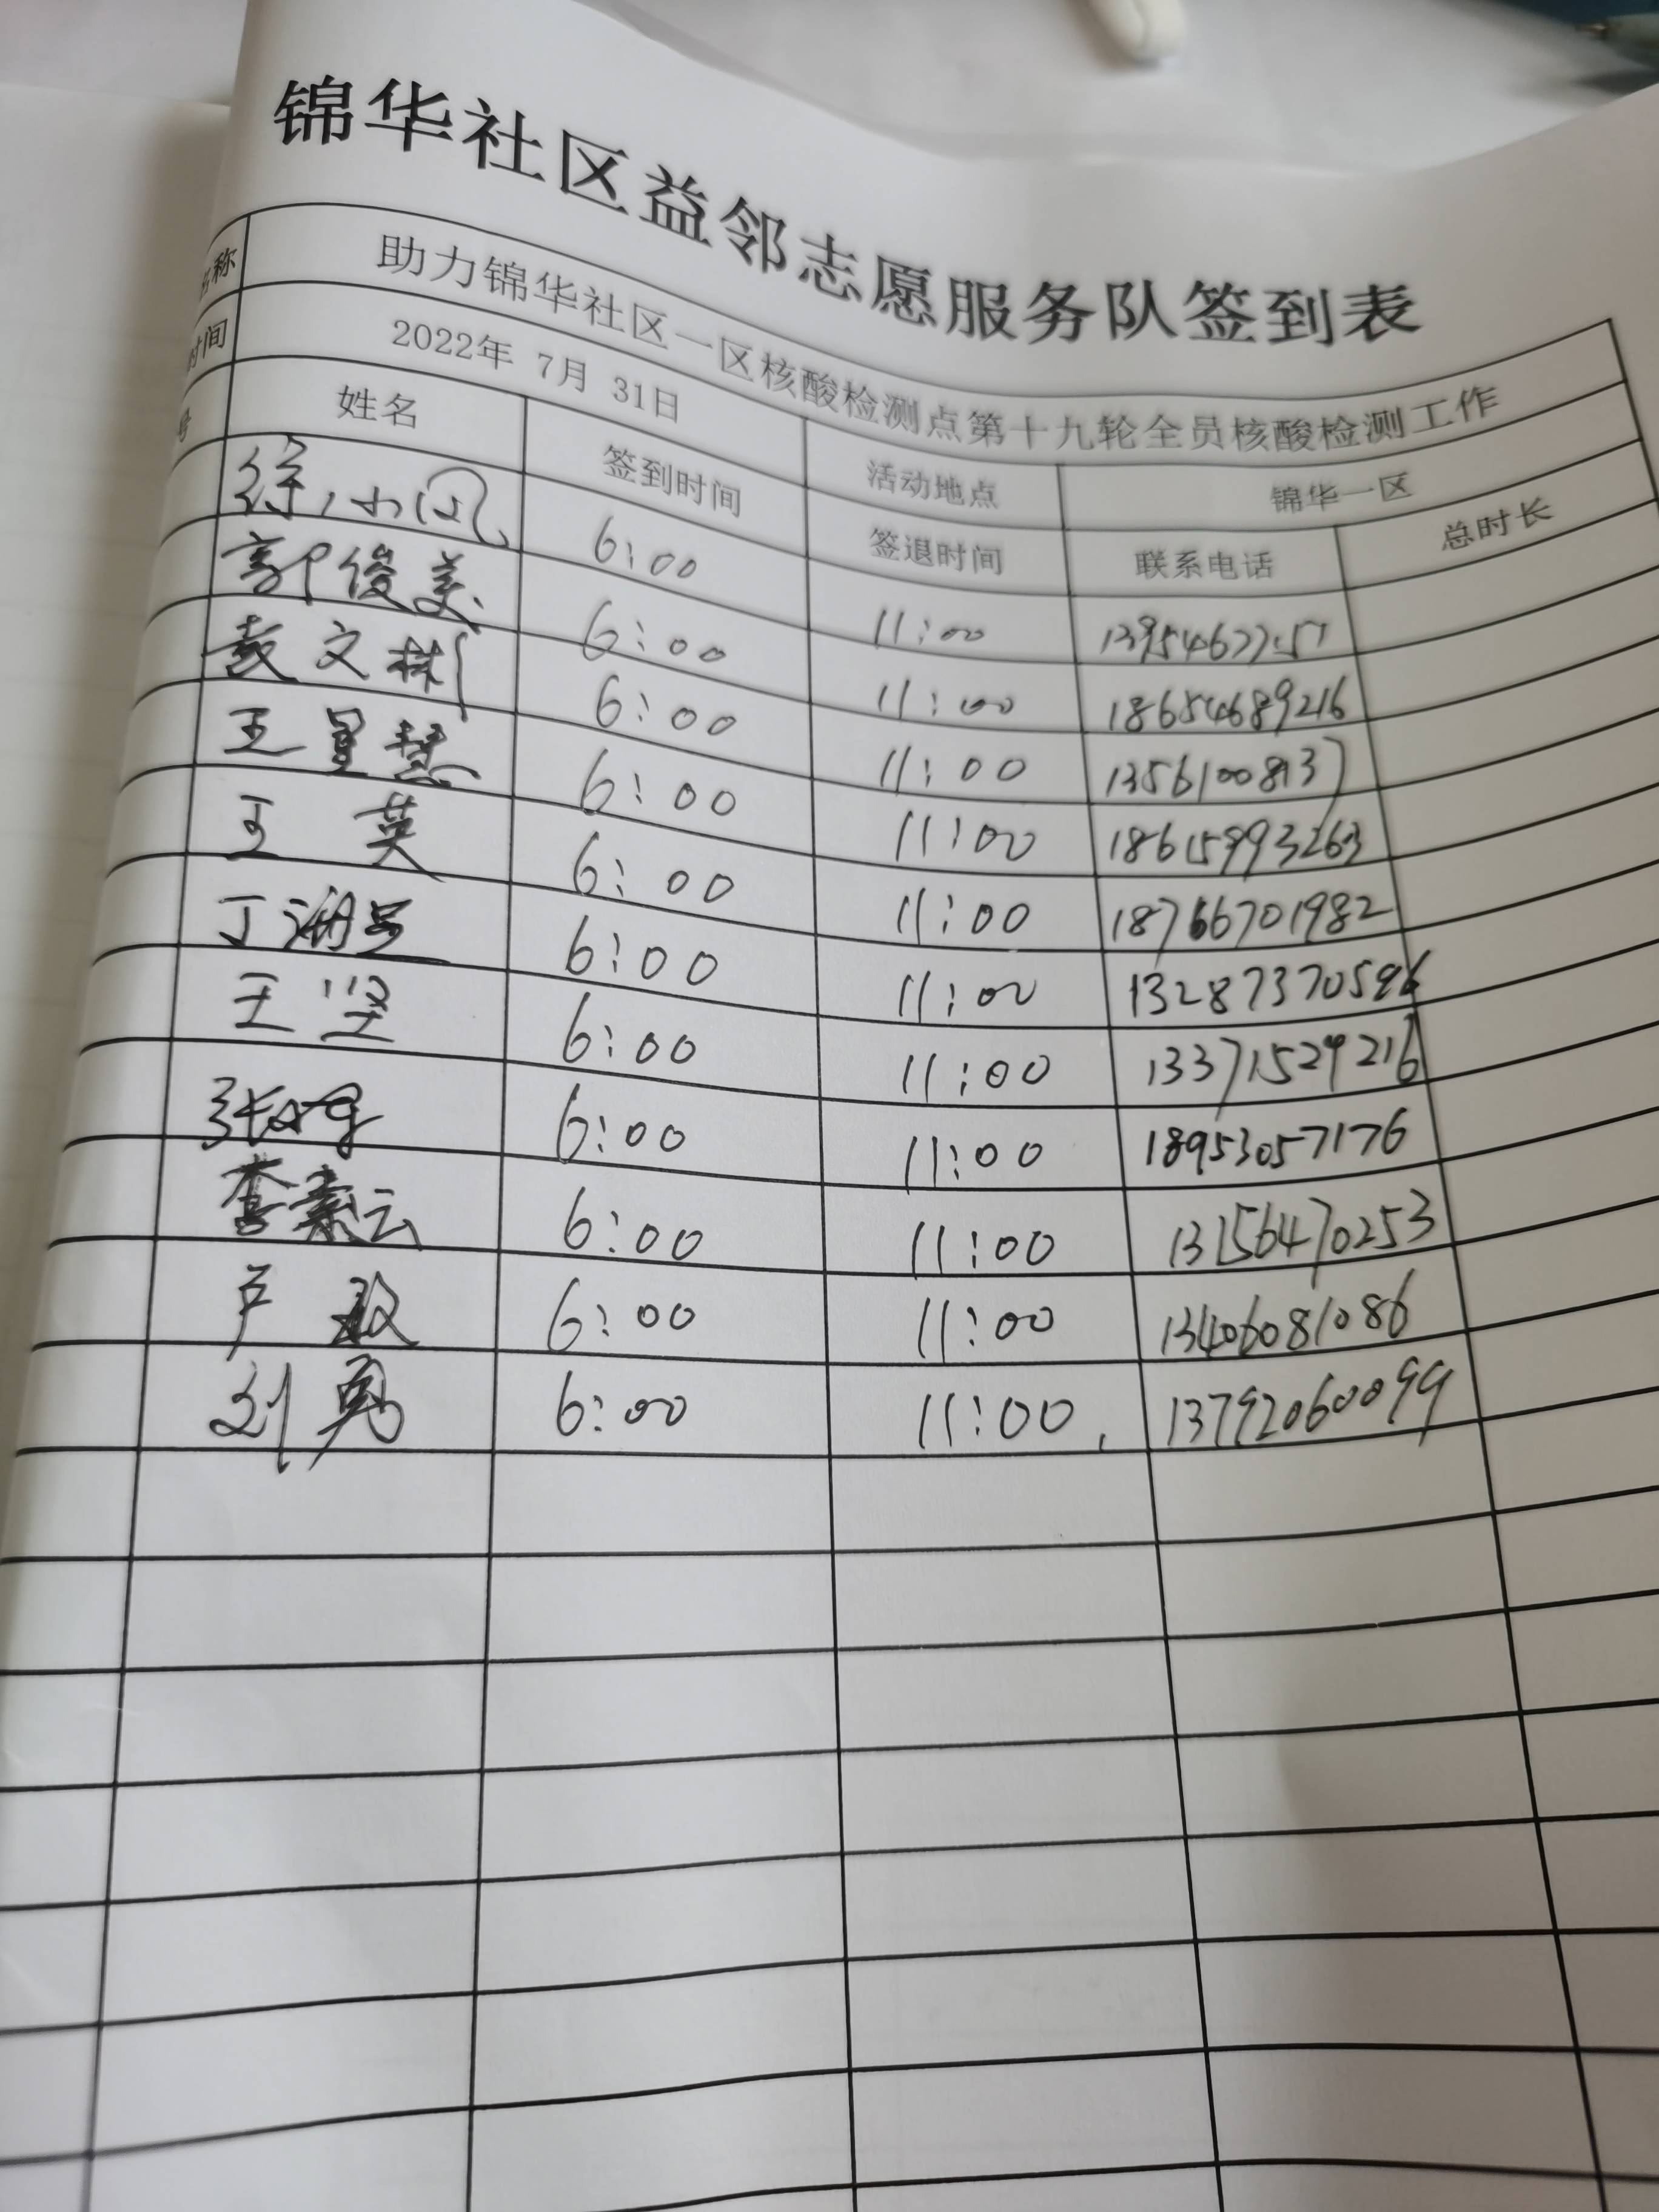 锦华社区益邻志愿服务队签到表
名称 助力锦华社区一区核酸检测点第十九轮全员核酸检测工作
时间 2022年 7月 31日 活动地点 锦华一区
号 姓名 签到时间 签退时间 联系电话 总时长
徐小凤 6:00 11:00
郭俊美 6:00 11:00 18654689216
文彬 6:00 11:00 13561008137
王星慧 6:00 11:00 18615993263
王英 6:00 11:00 18766701982
丁 6:00 11:00 13287370596
王坚 6:00 11:00 13371529216
张 6:00 11:00 18953057176
李素云 6:00 11:00 13156470253
卢敏 6:00 11:00 13406081086
刘勇 6:00 11:00 13792060099